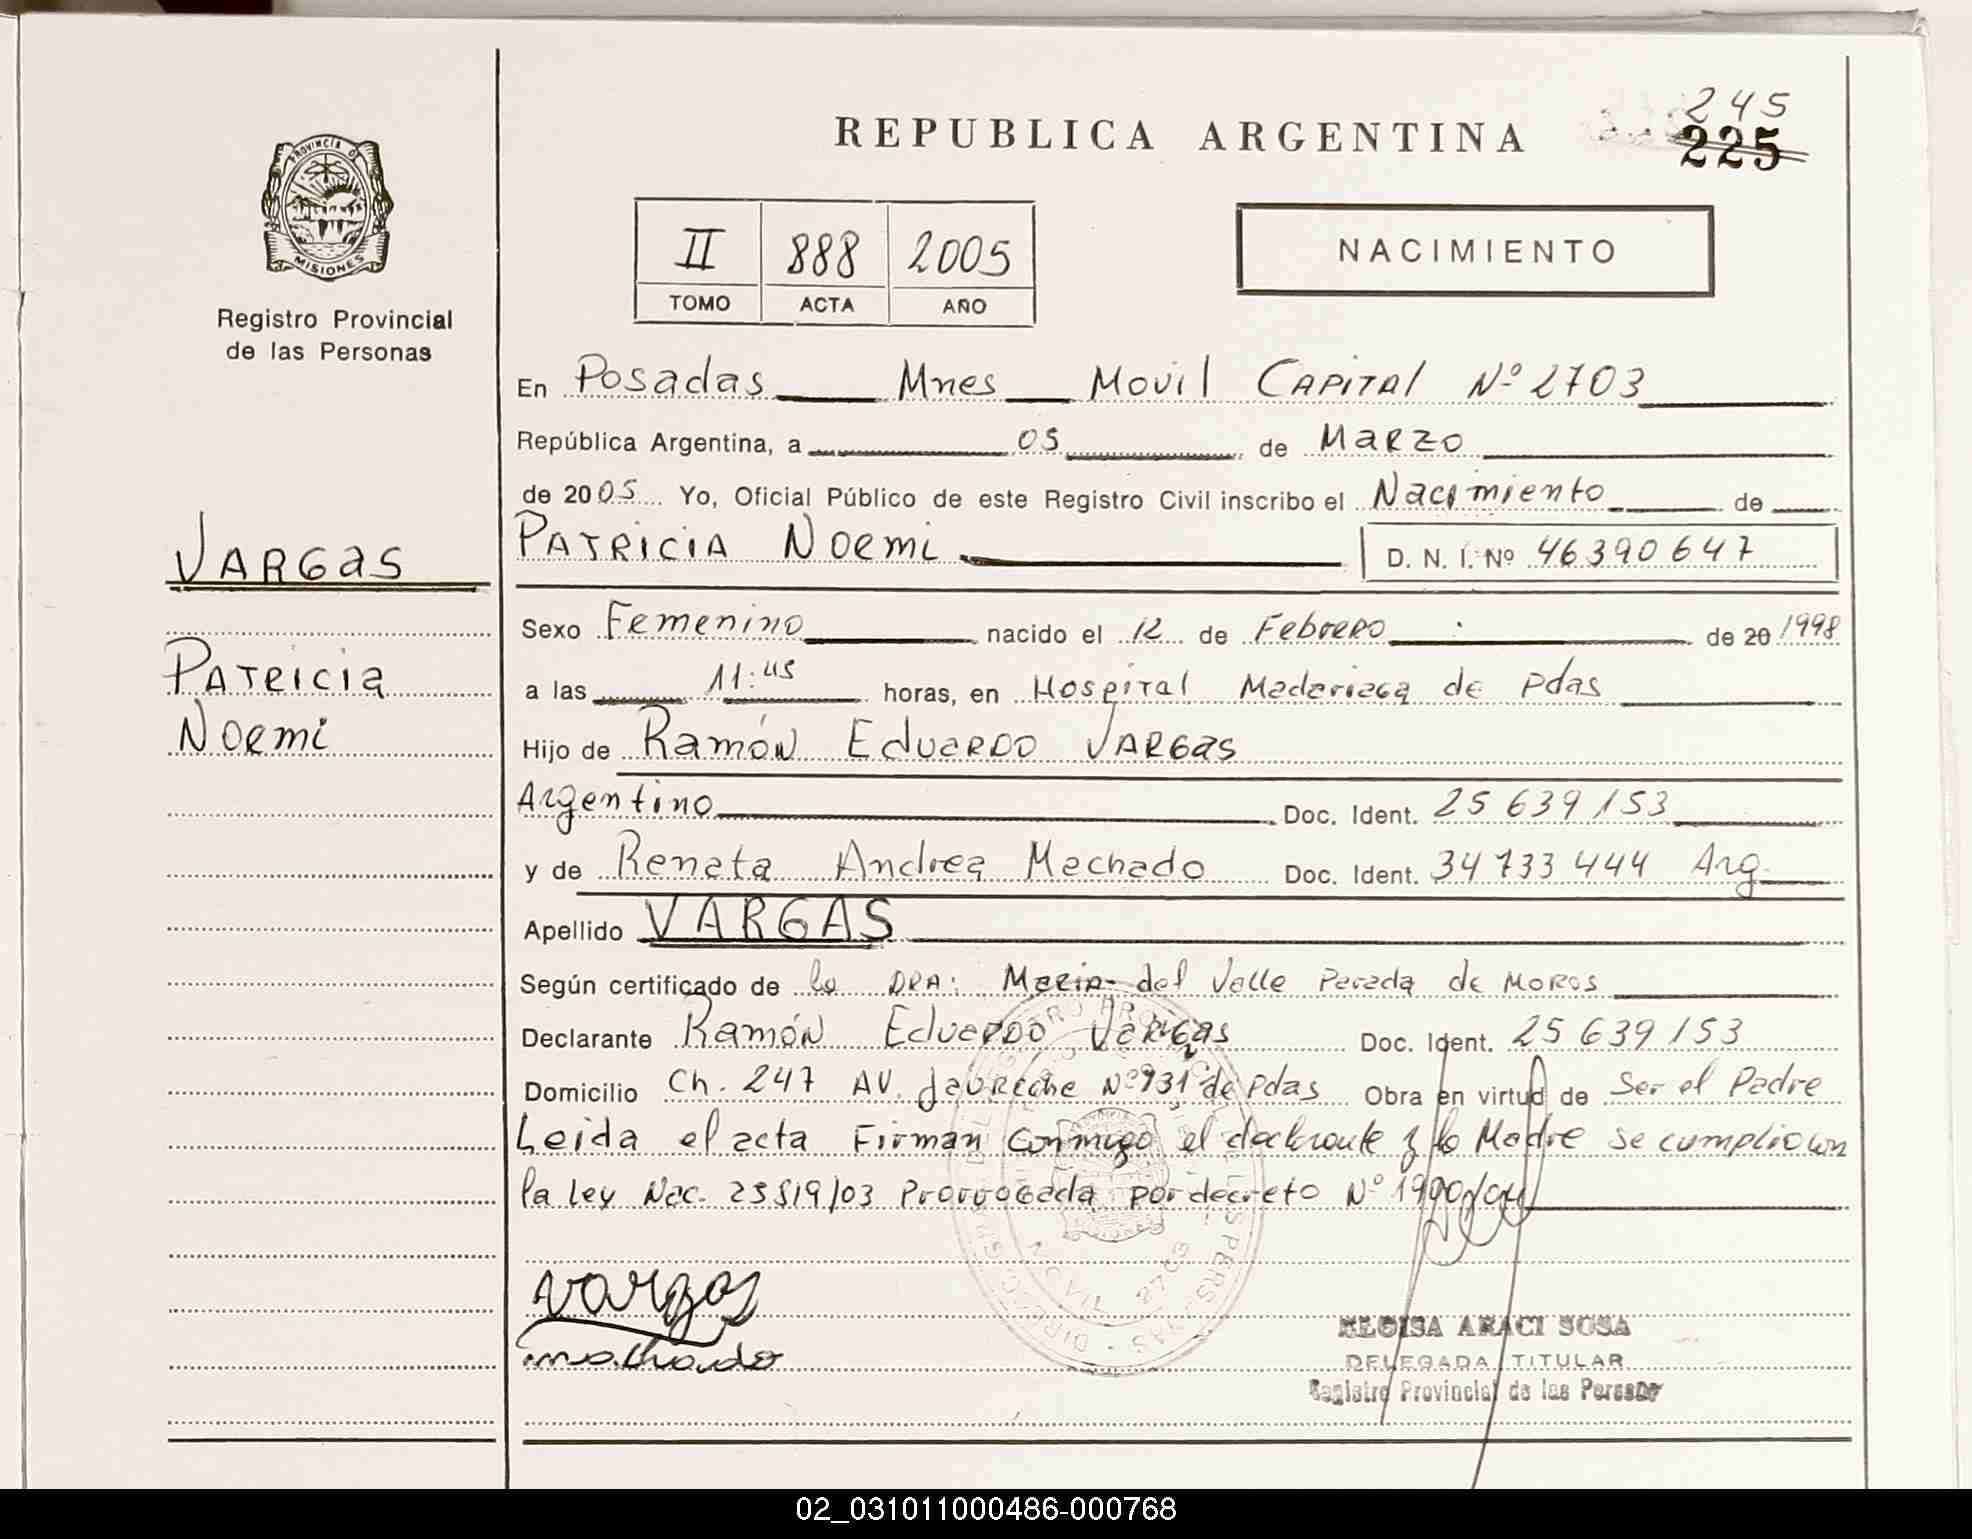 245
REPUBLICA ARGENTINA 225
PROVINCIA DE MISIONES
Registro Provincial
de las Personas
II 888 2005
TOMO ACTA AÑO
NACIMIENTO
En Posadas Mnes Movil Capital Nº 2703
República Argentina, a 05 de Marzo
de 2005 Yo, Oficial Público de este Registro Civil inscribo el Nacimiento de
Patricia Noemi D. N. I. Nº 46390647
Vargas
Patricia
Noemi
Sexo Femenino nacido el 12 de Febrero de 20 1998
a las 11:45 horas, en Hospital Madariaga de Pdas
Hijo de Ramón Eduardo Vargas
Argentino Doc. Ident. 25 639 153
y de Renata Andrea Machado Doc. Ident. 34 733 444 Arg
Apellido VARGAS
Según certificado de la DRA: Maria del Valle Parada de Moros
Declarante Ramón Eduardo Vargas Doc. Ident. 25 639 153
Domicilio Ch. 247 AV. Jaureche Nº 931 de Pdas Obra en virtud de Ser el Padre
Leida el acta Firman conmigo el declarante y la Madre se cumplio con
la ley Nac. 25819/03 Prorrogada por decreto Nº
Vargas
Machado
ELOISA ARACI SOSA
DELEGADA TITULAR
Registro Provincial de las Personas
02_031011000486-000768